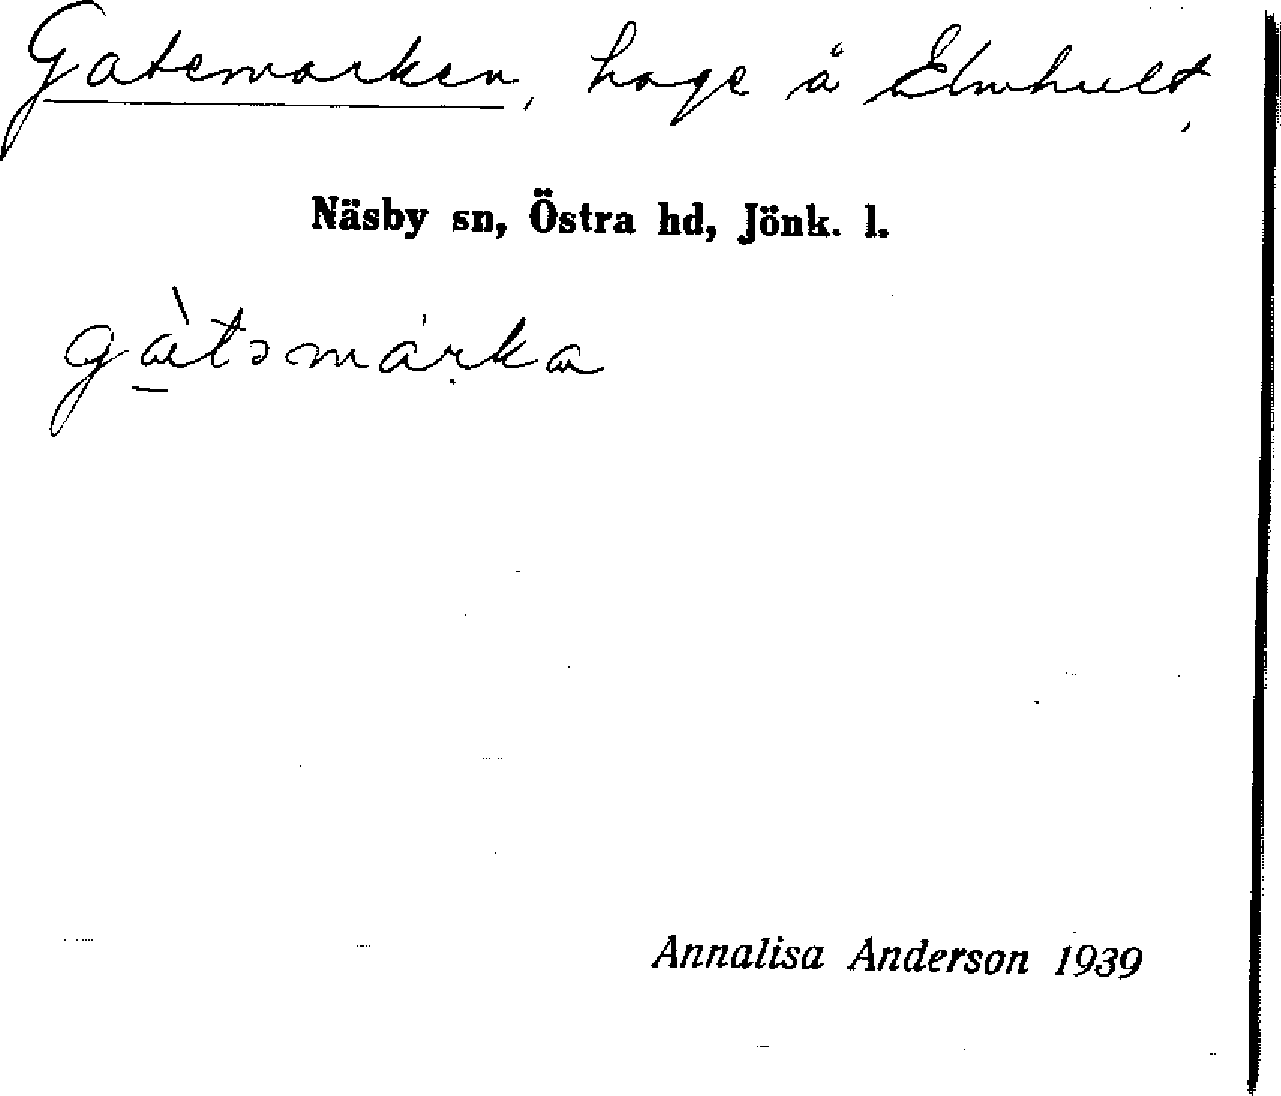 Gatemarken, hage å Elmhult,
Näsby sn, Östra hd, Jönk. l.
gàtəmárka
Annalisa Anderson 1939